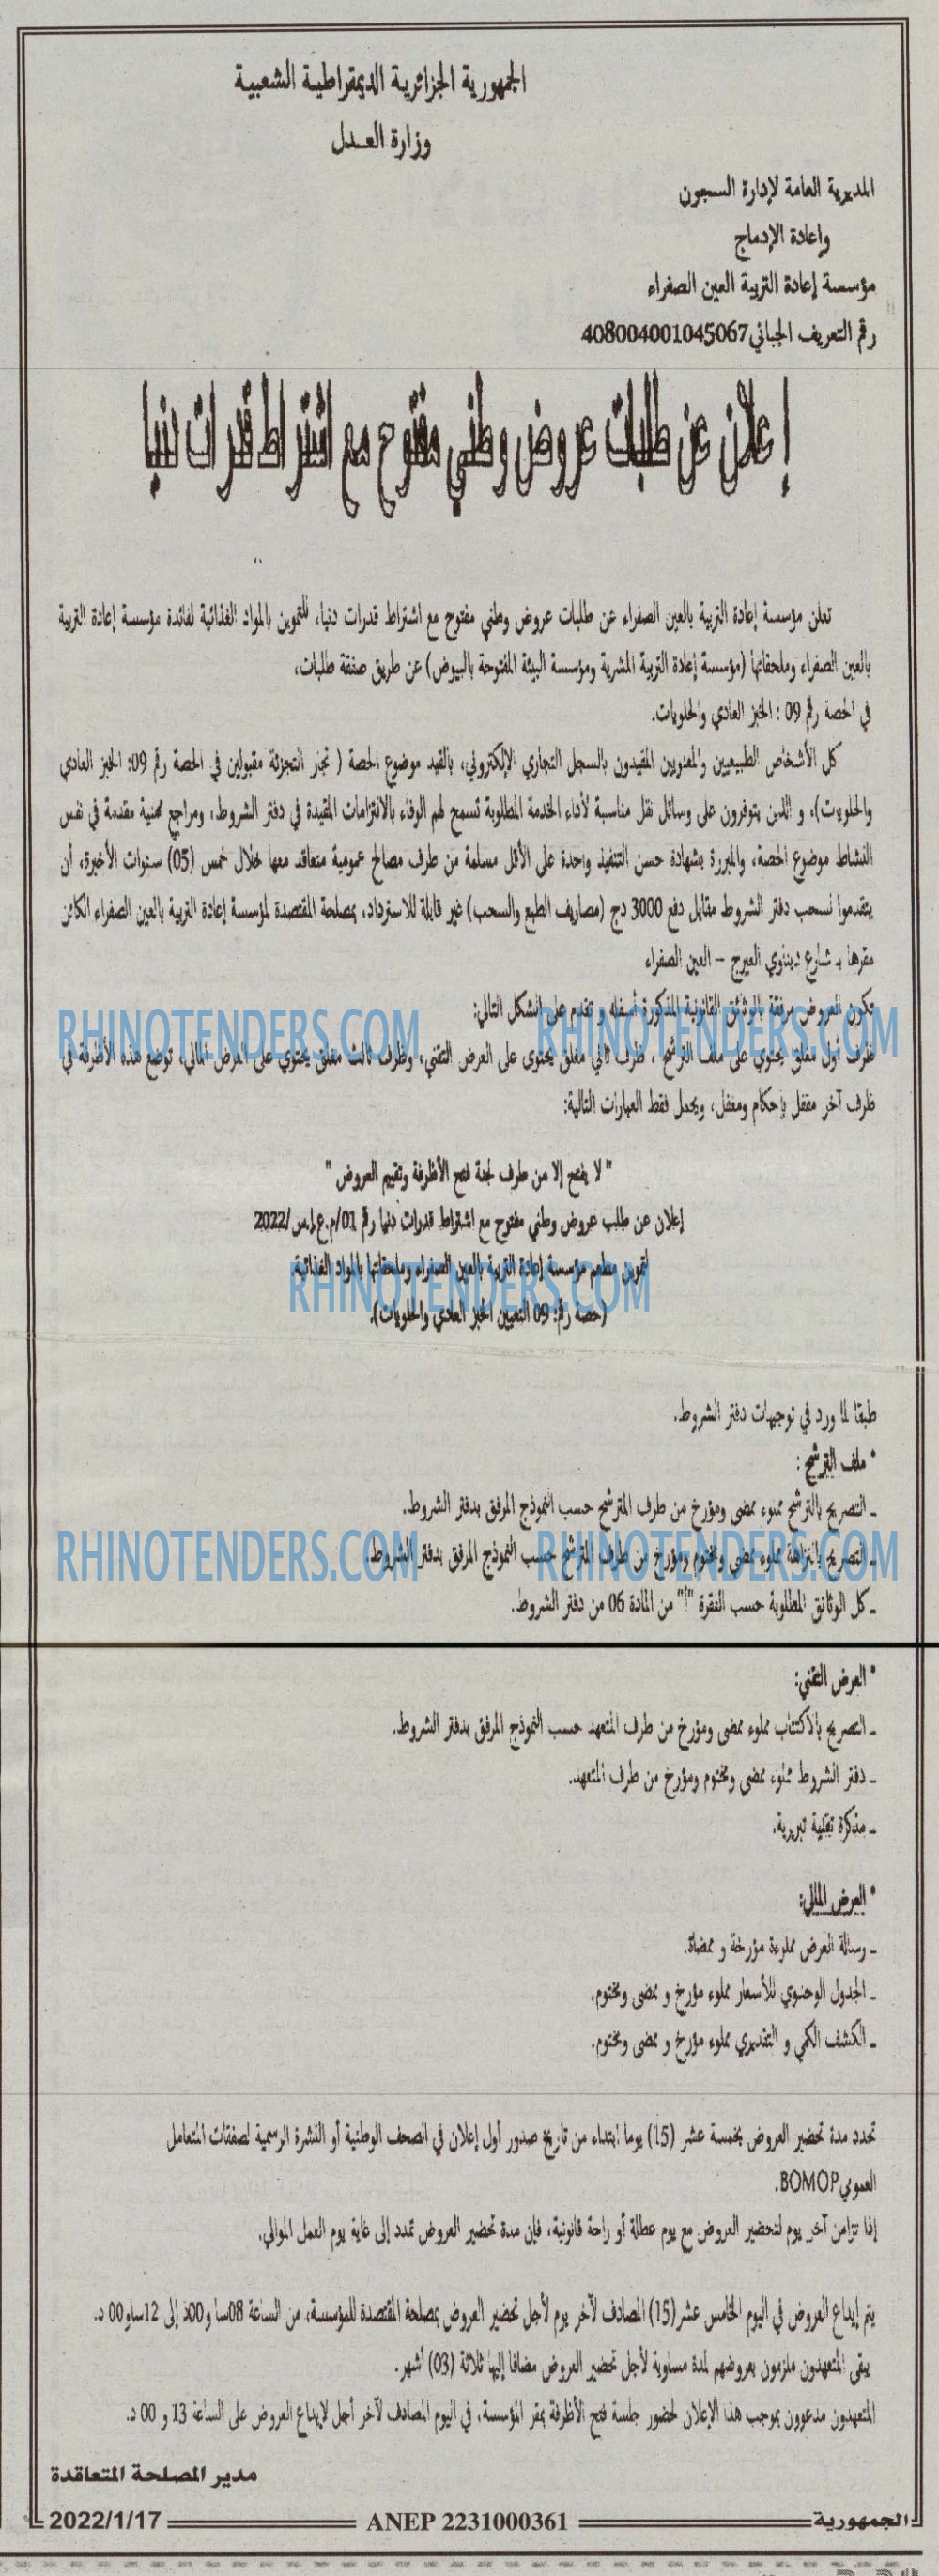 الجمهورية الجزائرية الديمقراطية الشعبية
وزارة العدل
المديرية العامة لإدارة السجون
وإعادة الإدماج
مؤسسة إعادة التربية العين الصفراء
رقم التعريف الجبائي408004001045067
إعلان عن طلبات عروض وطني مفتوح مع اشتراط قدرات دنيا
تعلن مؤسسة إعادة التربية بالعين الصفراء عن طلبات عروض وطني مفتوح مع اشتراط قدرات دنيا، للتموين بالمواد الغذائية لفائدة مؤسسة إعادة التربية
بالعين الصفراء وملحقاتها (مؤسسة إعادة التربية المشرية ومؤسسة البيئة المفتوحة بالبيوض) عن طريق صفقة طلبات،
في الحصة رقم 09 : الخبز العادي والحلويات.
كل الأشخاص الطبيعيين والمعنويين المقيدون بالسجل التجاري الإلكتروني، بالقيد موضوع الحصة ( تجار التجزئة مقبولين في الحصة رقم 09: الخبز العادي
والحلويات)، و الذين يتوفرون على وسائل نقل مناسبة لأداء الخدمة المطلوبة تسمح لهم الوفاء بالالتزامات المقيدة في دفتر الشروط، ومراجع مهنية مقدمة في نفس
النشاط موضوع الحصة، والمبررة بشهادة حسن التنفيذ واحدة على الأقل مسلمة من طرف مصالح عمومية متعاقد معها خلال خمس (05) سنوات الأخيرة، أن
يتقدموا لسحب دفتر الشروط مقابل دفع 3000 دج (مصاريف الطبع والسحب) غير قابلة للاسترداد، بمصلحة المقتصدة لمؤسسة إعادة التربية بالعين الصفراء الكائن
مقرها بـ شارع ديناوي العيرج – العين الصفراء
تكون العروض مرفقة بالوثائق القانونية المذكورة أسفله و تقدم على الشكل التالي:
RHINOTENDERS.COM RHINOTENDERS.COM
ظرف أول مغلق يحتوي على ملف الترشح ، ظرف ثاني مغلق يحتوي على العرض التقني، وظرف ثالث مغلق يحتوي على العرض المالي، توضع هذه الأظرفة في
ظرف آخر مقفل بإحكام ومغفل، ويحمل فقط العبارات التالية:
" لا يفتح إلا من طرف لجنة فتح الأظرفة وتقييم العروض "
إعلان عن طلب عروض وطني مفتوح مع اشتراط قدرات دنيا رقم 01/م.ع.إ.س/2022
لتموين مطعم مؤسسة إعادة التربية بالعين الصفراء وملحقاتها بالمواد الغذائية
RHINOTENDERS.COM
(حصة رقم: 09 التعيين الخبز العادي والحلويات).
طبقا لما ورد في توجيهات دفتر الشروط.
* ملف الترشح :
ـ التصريح بالترشح مملوء ممضى ومؤرخ من طرف المترشح حسب النموذج المرفق بدفتر الشروط.
ـ التصريح بالنزاهة مملوء ممضى ومختوم ومؤرخ من طرف المترشح حسب النموذج المرفق بدفتر الشروط.
RHINOTENDERS.COM RHINOTENDERS.COM
ـ كل الوثائق المطلوبة حسب الفقرة "أ" من المادة 06 من دفتر الشروط.
* العرض التقني:
ـ التصريح بالاكتتاب مملوء ممضى ومؤرخ من طرف المتعهد حسب النموذج المرفق بدفتر الشروط.
ـ دفتر الشروط مملوء ممضى ومختوم ومؤرخ من طرف المتعهد.
ـ مذكرة تقنية تبريرية.
* العرض المالي:
ـ رسالة العرض مملوءة مؤرخة و ممضاة.
ـ الجدول الوحدوي للأسعار مملوء مؤرخ و ممضى ومختوم.
ـ الكشف الكمي و التقديري مملوء مؤرخ و ممضى ومختوم.
تحدد مدة تحضير العروض بخمسة عشر (15) يوما ابتداء من تاريخ صدور أول إعلان في الصحف الوطنية أو النشرة الرسمية لصفقات المتعامل
العموميBOMOP.
إذا تزامن آخر يوم لتحضير العروض مع يوم عطلة أو راحة قانونية، فإن مدة تحضير العروض تمدد إلى غاية يوم العمل الموالي.
يتم إيداع العروض في اليوم الخامس عشر(15) المصادف لآخر يوم لأجل تحضير العروض بمصلحة المقتصدة للمؤسسة، من الساعة 08سا و00د إلى 12ساو00 د.
يبقى المتعهدون ملزمون بعروضهم لمدة مساوية لأجل تحضير العروض مضافا إليها ثلاثة (03) أشهر.
المتعهدون مدعوون بموجب هذا الإعلان لحضور جلسة فتح الأظرفة بمقر المؤسسة، في اليوم المصادف لآخر أجل لإيداع العروض على الساعة 13 و 00 د.
مدير المصلحة المتعاقدة
الجمهورية ANEP 2231000361 2022/1/17